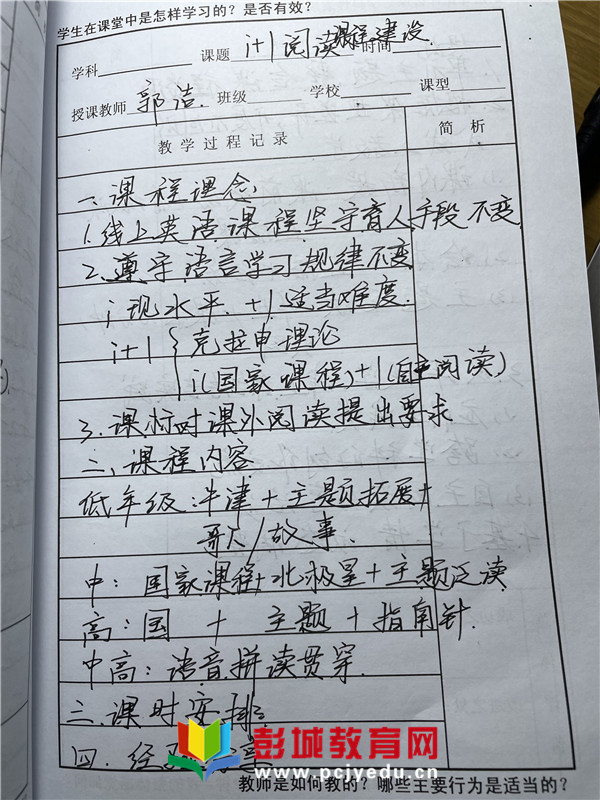 学生在课堂中是怎样学习的？是否有效？
学科 课题 i+1阅读课程建设 时间
授课教师 郭洁. 班级 学校 课型
教学过程记录 简析
一、课程理念
1.线上英语课程坚守育人手段不变
2.遵守语言学习规律不变
i现水平.+1适当难度.
i+1{克拉申理论
i(国家课程)+1(自主阅读)
3.课标对课外阅读提出要求
二、课程内容
低年级:牛津+主题拓展+
歌曲/故事.
中:国家课程+北极星+主题泛读
高:国 + 主题 + 指南针.
中高:语音拼读贯穿.
三.课时安排
四.经
彭城教育网
www.pcjyedu.cn
教师是如何教的？哪些主要行为是适当的？